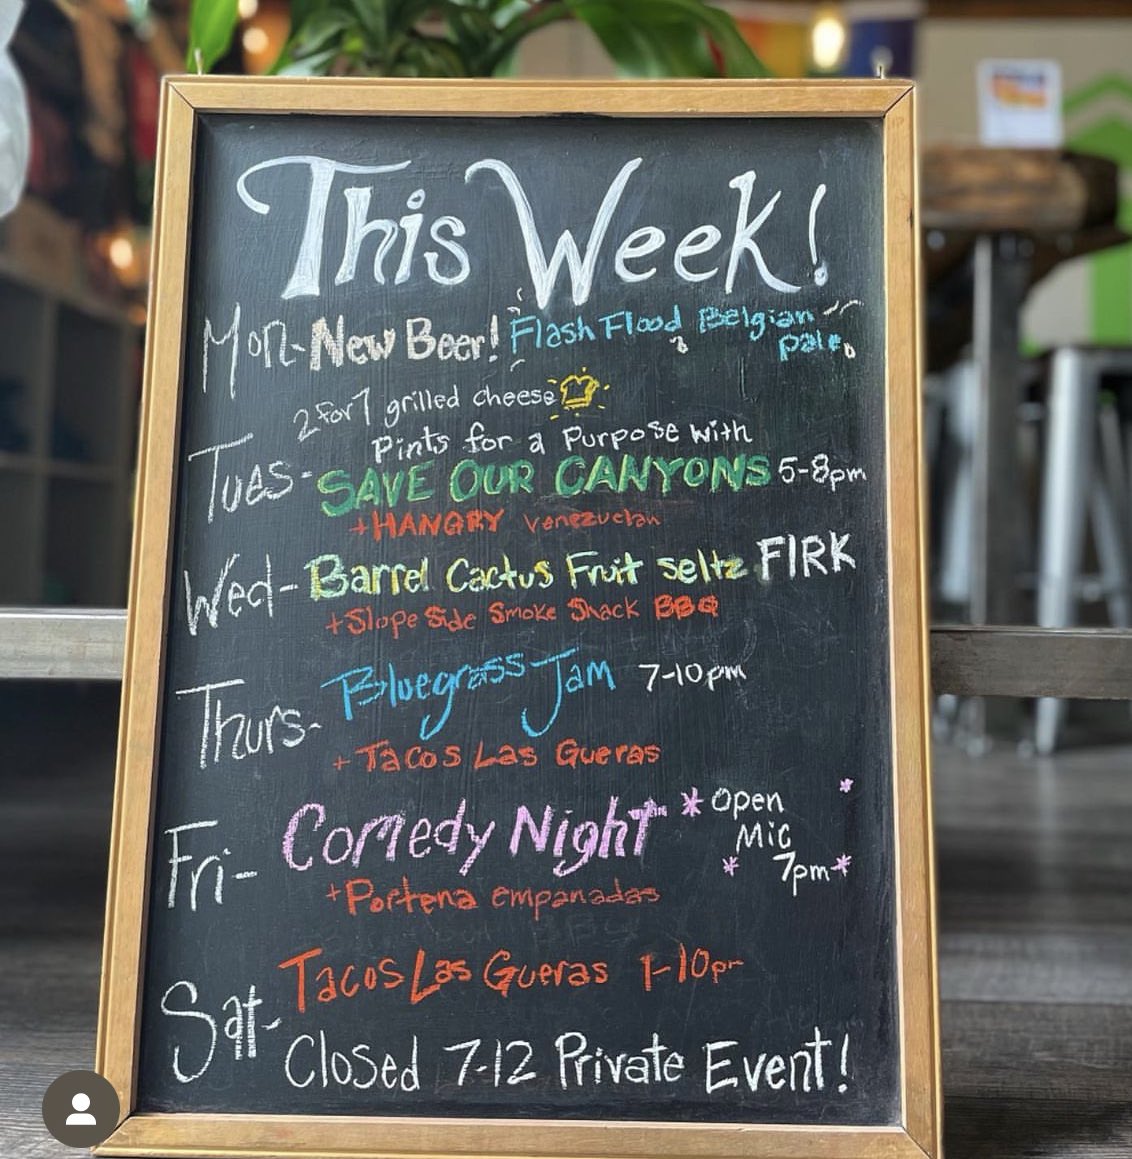 This Week!
Mon- New Beer! Flash Flood Belgian
pale
2 for 1 grilled cheese
Tues- Pints for a Purpose with
SAVE OUR CANYONS 5-8pm
+HANGRY Venezuelan
Wed- Barrel Cactus Fruit seltz FIRK
+Slope Side Smoke Shack BBQ
Thurs- Bluegrass Jam 7-10pm
+Tacos Las Gueras
Fri- Comedy Night *Open
Mic
7pm*
+Portena empanadas
Sat- Tacos Las Gueras 1-10pm
Closed 7-12 Private Event!